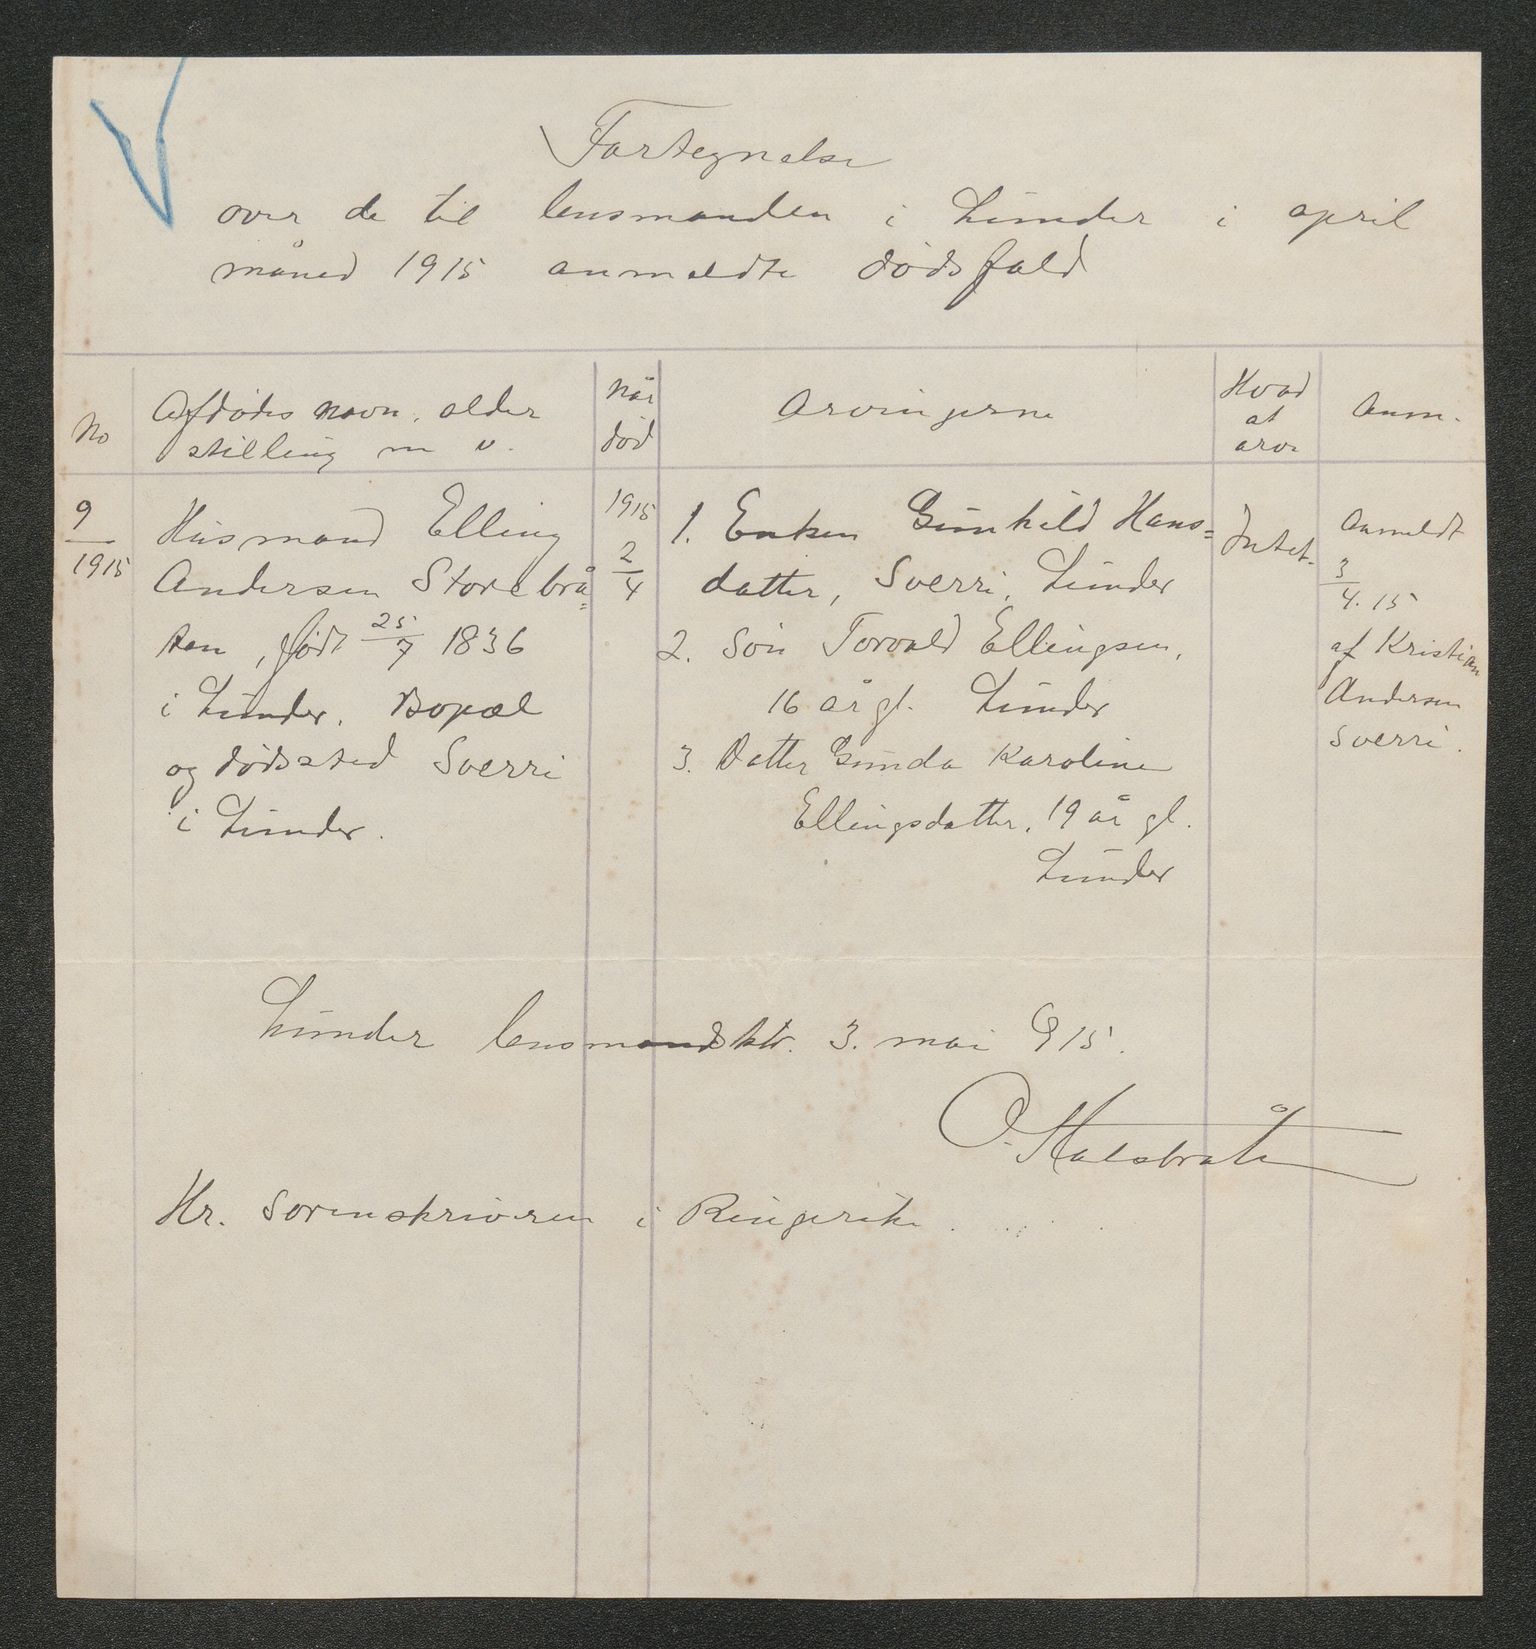 Fortegnelse
over de til lensmanden i Lunder i april
måned 1915 anmeldte dødsfald
No
Afdødes navn, alder
stilling m v.
Når
død
Arvingerne
Hvad
at
arve
Anm.
9
1915
Husmand Elling
Andersen Storebrå=
ten, født 25/7 1836
i Lunder. Bopæl
og dødssted Sverri
i Lunder.
1915
2/4
1. Enken Gunhild Hans=
datter, Sverri, Lunder
2. Søn Torvald Ellingsen,
16 år gl. Lunder
3. Datter Gunda Karoline
Ellingsdatter, 19 år gl.
Lunder
Intet.
Anmeldt
3/4. 15
af Kristian
Andersen
Sverri.
Lunder lensmandsktr. 3. mai 915.
O. Halsbråten
Hr. Sorenskriveren i Ringerike